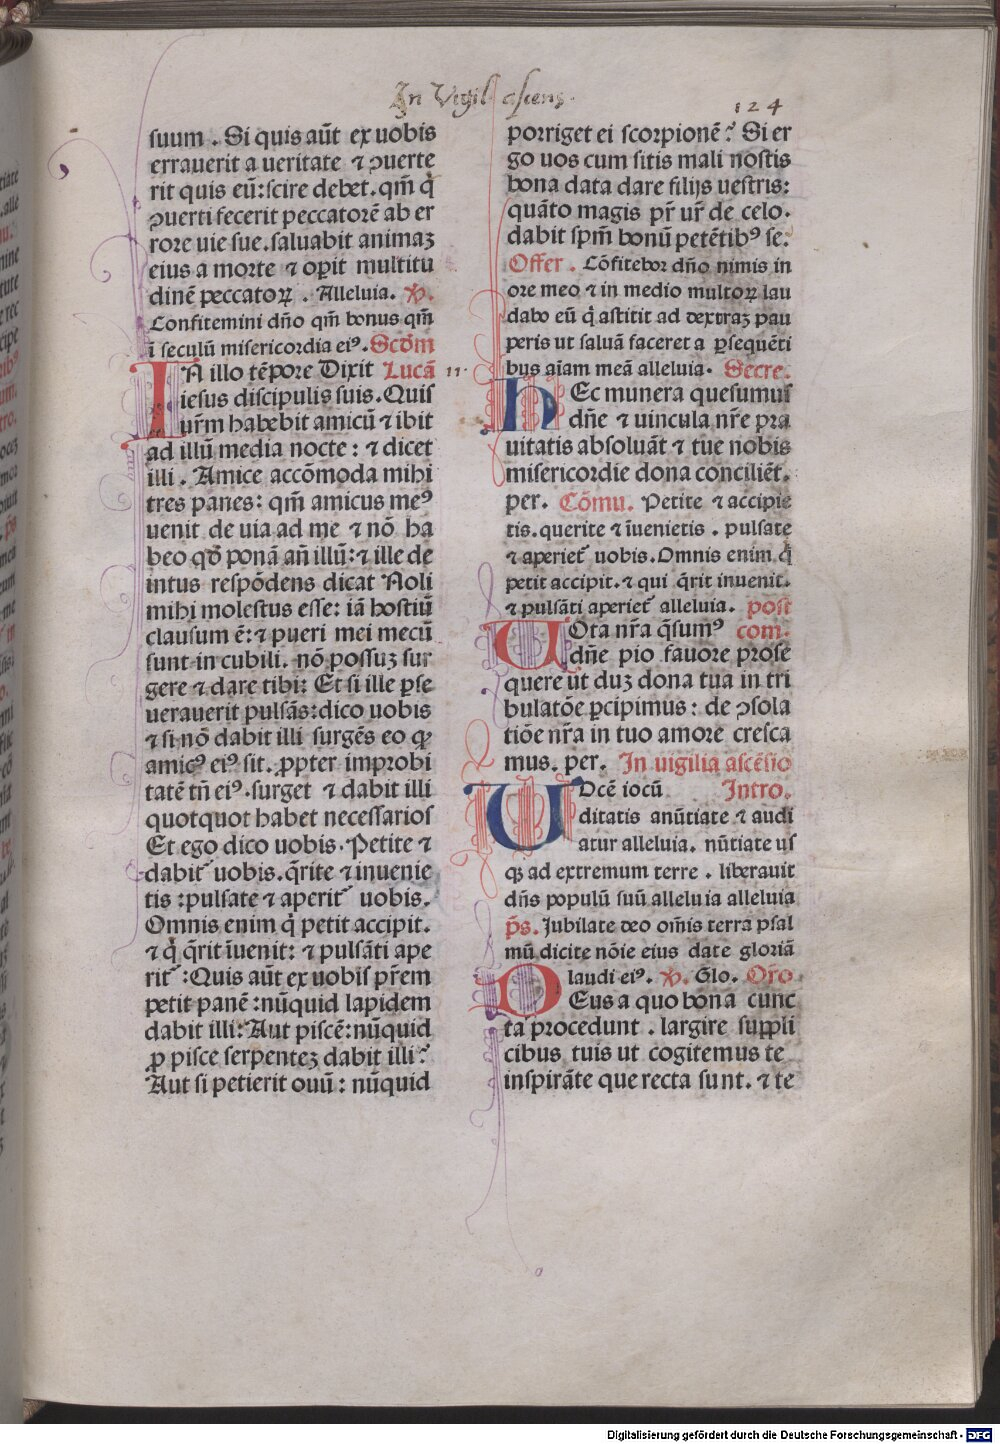 In Vigil ascens.
124
suum . Si quis aūt ex uobis
errauerit a ueritate ⁊ ꝯuerte
rit quis eū: scire debet. qm̄ q̇
ꝯuerti fecerit peccatorē ab er
rore uie sue. saluabit animaꝫ
eius a morte ⁊ oꝑit multitu
dinē peccatoꝝ . Alleluia. ℣.
Confitemini dn̄o qm̄ bonus qm̄
ī seculū misericordia eiꝰ. Scd̄m
IN illo tēpore Dixit Lucā 11.
iesus discipulis suis. Quis
ur̄m habebit amicū ⁊ ibit
ad illū media nocte : ⁊ dicet
illi . Amice accōmoda mihi
tres panes: qm̄ amicus meꝰ
uenit de uia ad me ⁊ nō ha
beo qd̄ ponā an̄ illū: ⁊ ille de
intus respōdens dicat Noli
mihi molestus esse: iā hostiū
clausum ē: ⁊ pueri mei mecū
sunt in cubili. nō possuꝫ sur
gere ⁊ dare tibi: Et si ille ꝑse
uerauerit pulsās: dico uobis
⁊ si nō dabit illi surgēs eo ꝙ
amicꝰ eiꝰ sit. ꝓpter improbi
tatē tn̄ eiꝰ. surget ⁊ dabit illi
quotquot habet necessarios
Et ego dico uobis. Petite ⁊
dabit᷑ uobis. q̄rite ⁊ inuenie
tis : pulsate ⁊ aperit᷑ uobis.
Omnis enim q̇ petit accipit.
⁊ q̇ q̄rit īuenit: ⁊ pulsāti ape
rit᷑ : Quis aūt ex uobis pr̄em
petit panē : nūquid lapidem
dabit illi: Aut piscē: nūquid
ꝓ pisce serpenteꝫ dabit illi ?
Aut si petierit ouū : nūquid
porriget ei scorpionē ? Si er
go uos cum sitis mali nostis
bona data dare filijs uestris:
quāto magis pr̄ ur̄ de celo.
dabit sp̄m bonū petētibꝰ se.
Offer . Cōfitebor dn̄o nimis in
ore meo ⁊ in medio multoꝝ lau
dabo eū q̇ astitit ad dextraꝫ pau
peris ut saluā faceret a ꝑsequēti
bus aīam meā alleluia. Secre.
HEc munera quesumus
dn̄e ⁊ uincula nr̄e pra
uitatis absoluāt ⁊ tue nobis
misericordie dona conciliēt.
per. Cōmu. Petite ⁊ accipie
tis. querite ⁊ īuenietis . pulsate
⁊ aperiet᷑ uobis. Omnis enim q̇
petit accipit. ⁊ qui q̄rit inuenit.
⁊ pulsāti aperiet᷑ alleluia. post
UOta nr̄a q̄sumꝰ com.
dn̄e pio fauore prose
quere ut duꝫ dona tua in tri
bulatōe ꝑcipimus : de ꝯsola
tiōe nr̄a in tuo amore cresca
mus. per. In uigilia ascēsio
UOcē iocū Intro.
ditatis anūtiate ⁊ audi
atur alleluia. nūtiate us
qꝫ ad extremum terre . liberauit
dn̄s populū suū alleluia alleluia
p̄s. Iubilate deo om̄is terra psal
mū dicite nōie eius date gloriā
laudi eiꝰ. ℣. Glo. Or̄o
DEus a quo bona cunc
ta procedunt . largire supꝑli
cibus tuis ut cogitemus te
inspirāte que recta sunt. ⁊ te
Digitalisierung gefördert durch die Deutsche Forschungsgemeinschaft - DFG